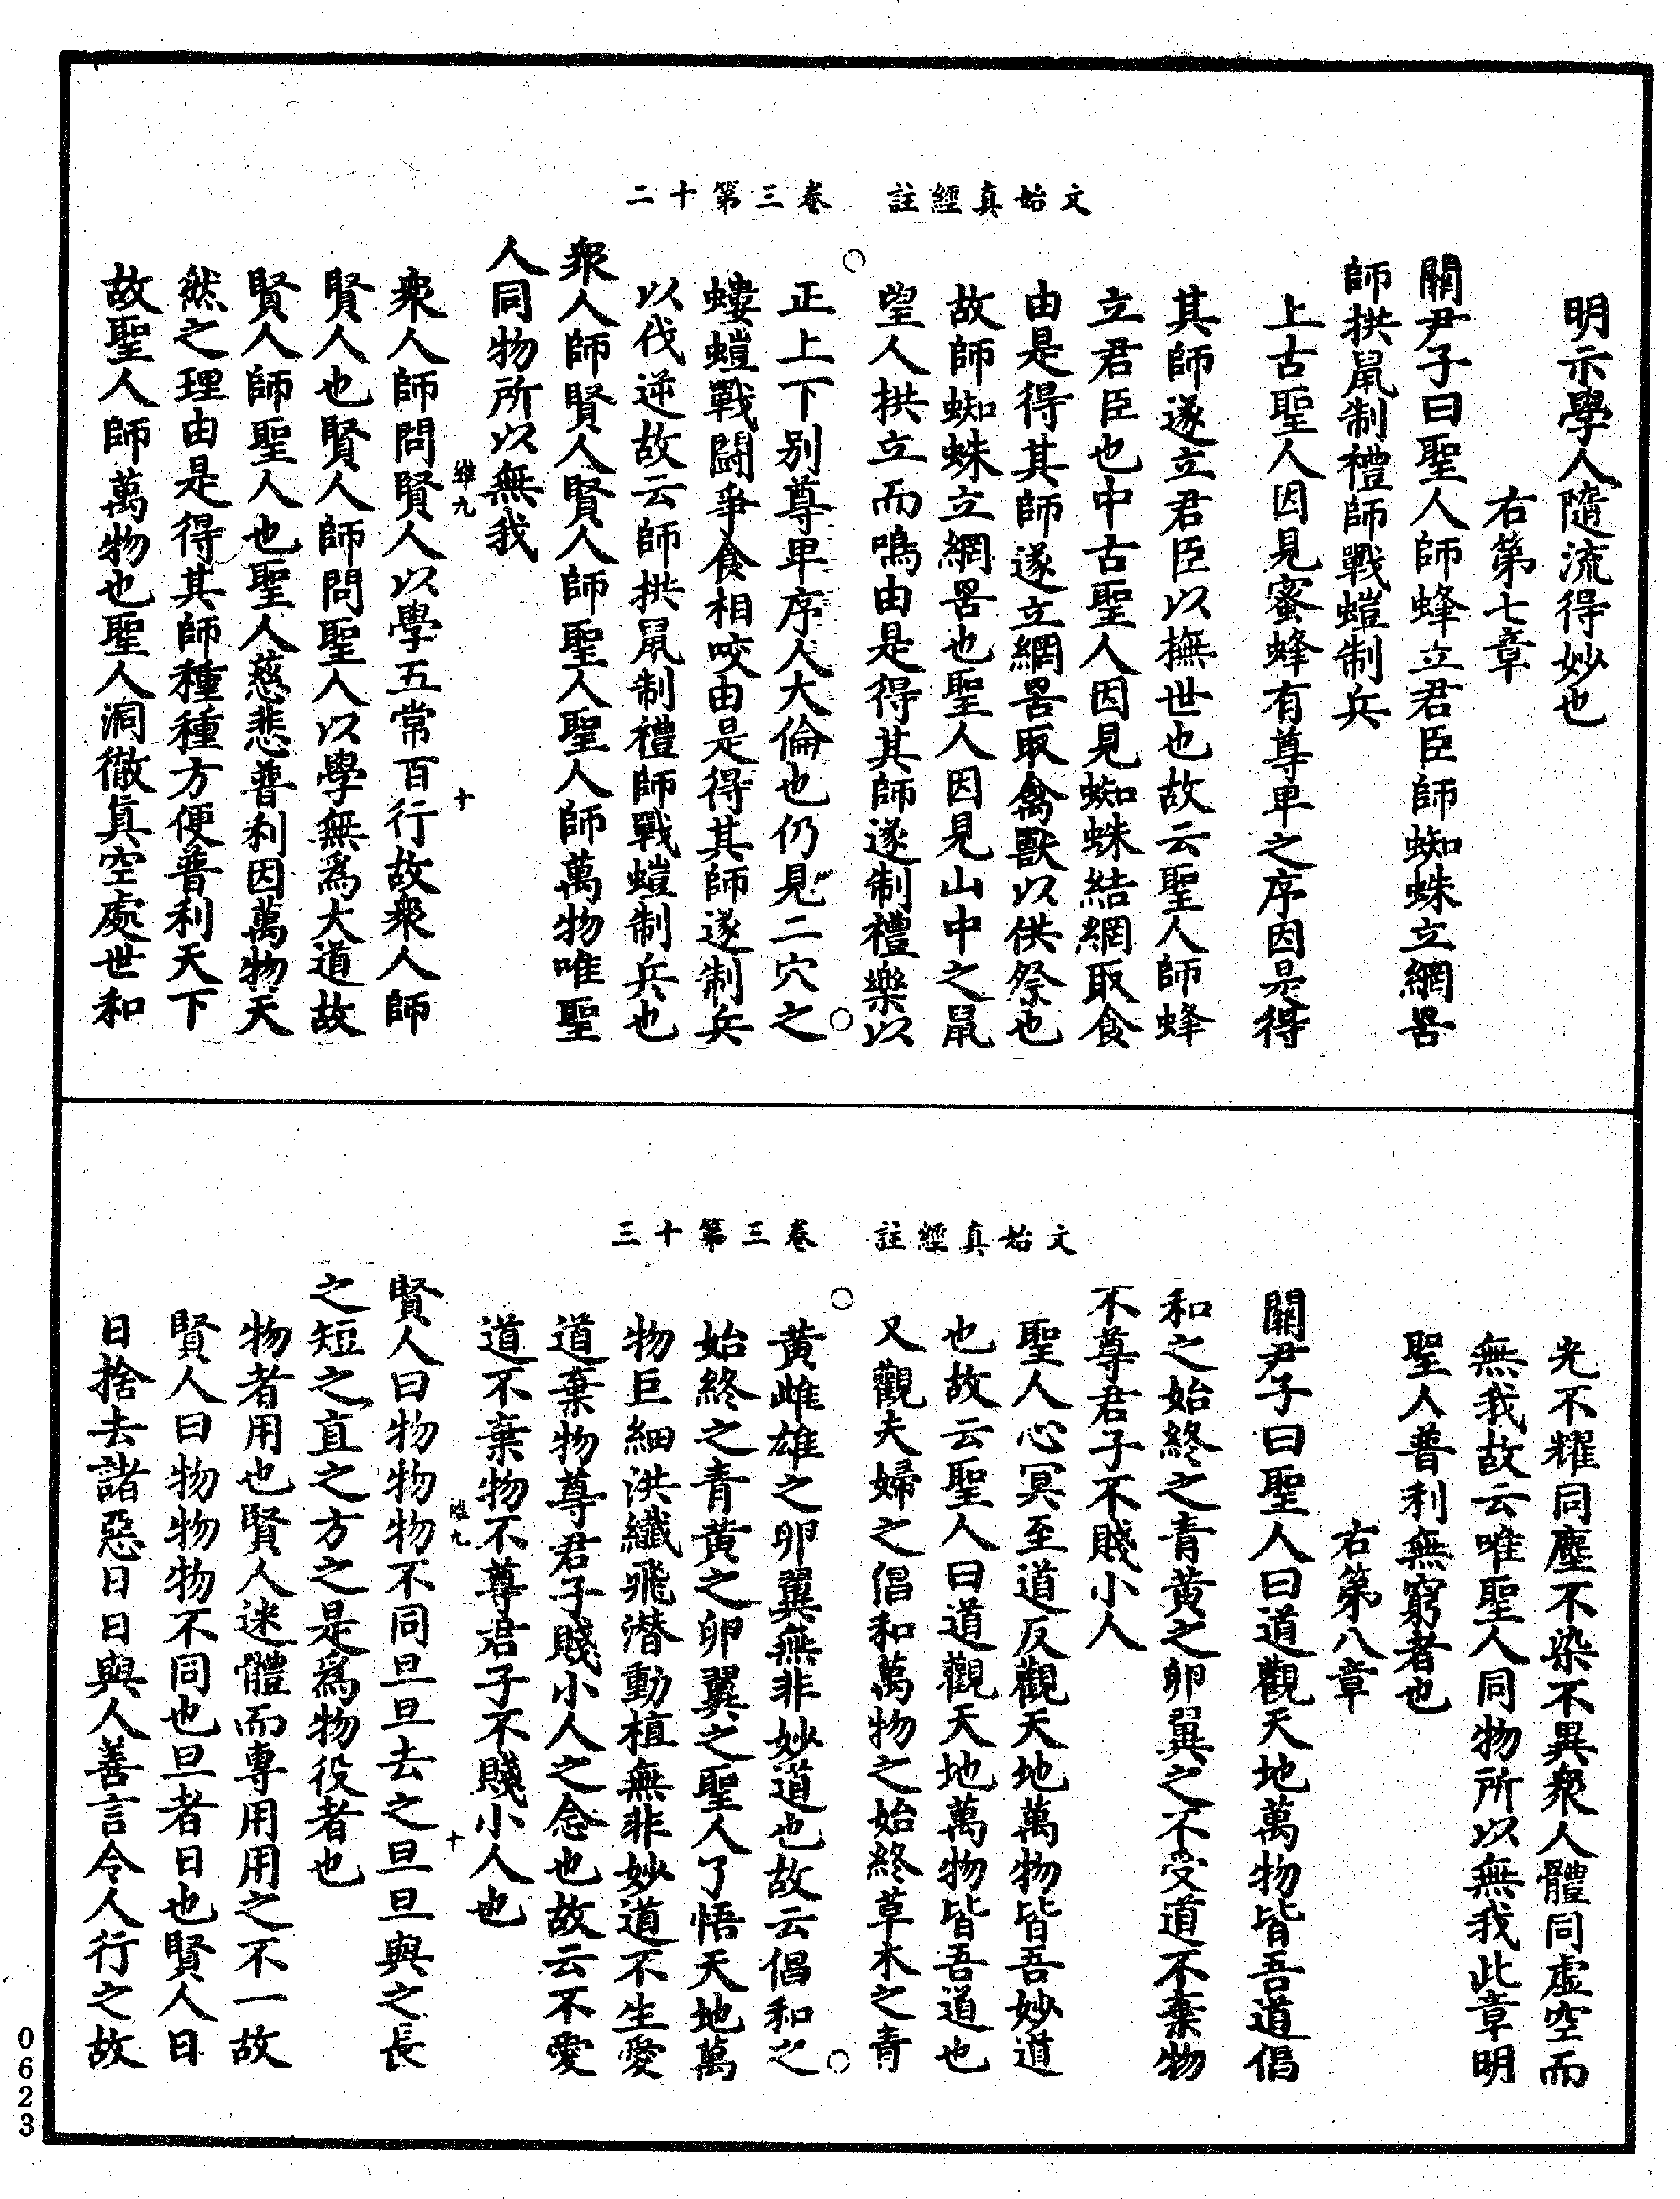 文始真經註　卷三第十二
明示學人隨流得妙也
右第七章
關尹子曰聖人師蜂立君臣師蜘蛛立網罟
師拱鼠制禮師戰螘制兵
上古聖人因見蜜蜂有尊卑之序因是得
其師遂立君臣以撫世也故云聖人師蜂
立君臣也中古聖人因見蜘蛛結網取食
由是得其師遂立網罟取禽獸以供祭也
故師蜘蛛立網罟也聖人因見山中之鼠
望人拱立而鳴由是得其師遂制禮樂以
正上下別尊卑序人大倫也仍見二穴之
螻螘戰鬪爭食相咬由是得其師遂制兵
以伐逆故云師拱鼠制禮師戰螘制兵也
衆人師賢人賢人師聖人聖人師萬物唯聖
人同物所以無我
維九
十
衆人師問賢人以學五常百行故衆人師
賢人也賢人師問聖人以學無爲大道故
賢人師聖人也聖人慈悲普利因萬物天
然之理由是得其師種種方便普利天下
故聖人師萬物也聖人洞徹眞空處世和
文始真經註　卷三第十三
光不耀同塵不染不異衆人體同虛空而
無我故云唯聖人同物所以無我此章明
聖人普利無窮者也
右第八章
關尹子曰聖人曰道觀天地萬物皆吾道倡
和之始終之青黃之卵翼之不受道不棄物
不尊君子不賤小人
聖人心冥至道反觀天地萬物皆吾妙道
也故云聖人曰道觀天地萬物皆吾道也
又觀夫婦之倡和萬物之始終草木之青
黃雌雄之卵翼無非妙道也故云倡和之
始終之青黃之卵翼之聖人了悟天地萬
物巨細洪纖飛潛動植無非妙道不生愛
道棄物尊君子賤小人之念也故云不愛
道不棄物不尊君子不賤小人也
維九
十
賢人曰物物物不同旦旦去之旦旦與之長
之短之直之方之是爲物役者也
物者用也賢人迷體而專用用之不一故
賢人曰物物物不同也旦者日也賢人日
日捨去諸惡日日與人善言令人行之故
0623